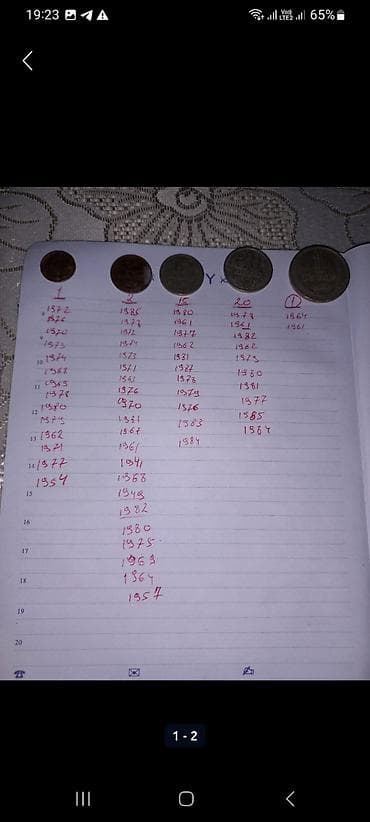 19:23 65%
Y
1 2 15 20 1
1972 1985 1980 1973 1964
1926 1973 1961 1961 1961
1970 1972 1977 1982
1973 1974 1962 1962
10 1974 1973 1931 1973
1968 1971 1987 1980
11 1969 1961 1973 1981
1978 1976 1979 1977
12 1980 1970 1976 1985
1979 1981 1983 1984
13 1962 1967 1984
1971 1961
14 1977 1941
1954 1968
15 1949
1982
16 1980
1975
17 1969
18 1964
1957
19
20
1 - 2